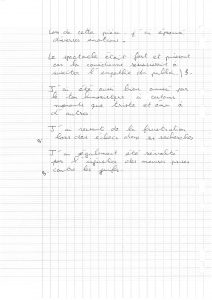 Lors de cette pièce j'ai éprouvé
diverses émotions.
Le spectacle était fort et puissant
car la comédienne réussissait à
susciter l'empathie du public
J'ai été aussi bien amusée par
le ton humoristique à certains
moments que triste et émue à
d'autres
J'ai ressenti de la frustration
lors des échecs dans ses recherches
J'ai également été révoltée
par l'injustice des mesures prises
contre les juifs